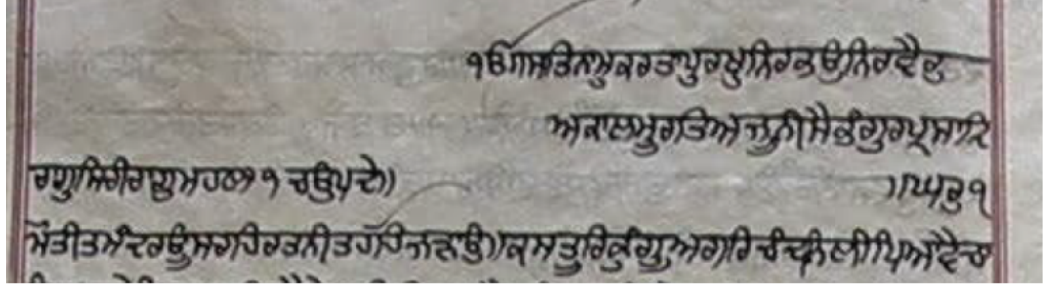 ੴਸਤਿਨਾਮੁਕਰਤਾਪੁਰਖੁਨਿਰਭਉਨਿਰਵੈਰੁ
ਅਕਾਲਮੂਰਤਿਅਜੂਨੀਸੈਭੰਗੁਰਪ੍ਰਸਾਦਿ
ਰਾਗੁਸਿਰੀਰਾਗੁਮਹਲਾ ੧ ਚਉਪਦੇ॥ ॥ਘਰੁ੧
ਮੋਤੀਤਮੰਦਰਊਸਰਹਿਰਤਨੀਤਹੋਹਿਜੜਾਉ॥ਕਸਤੂਰਿਕੁੰਗੂਅਗਰਿਚੰਦਨਿਲੀਪਿਆਵੈਚਾ